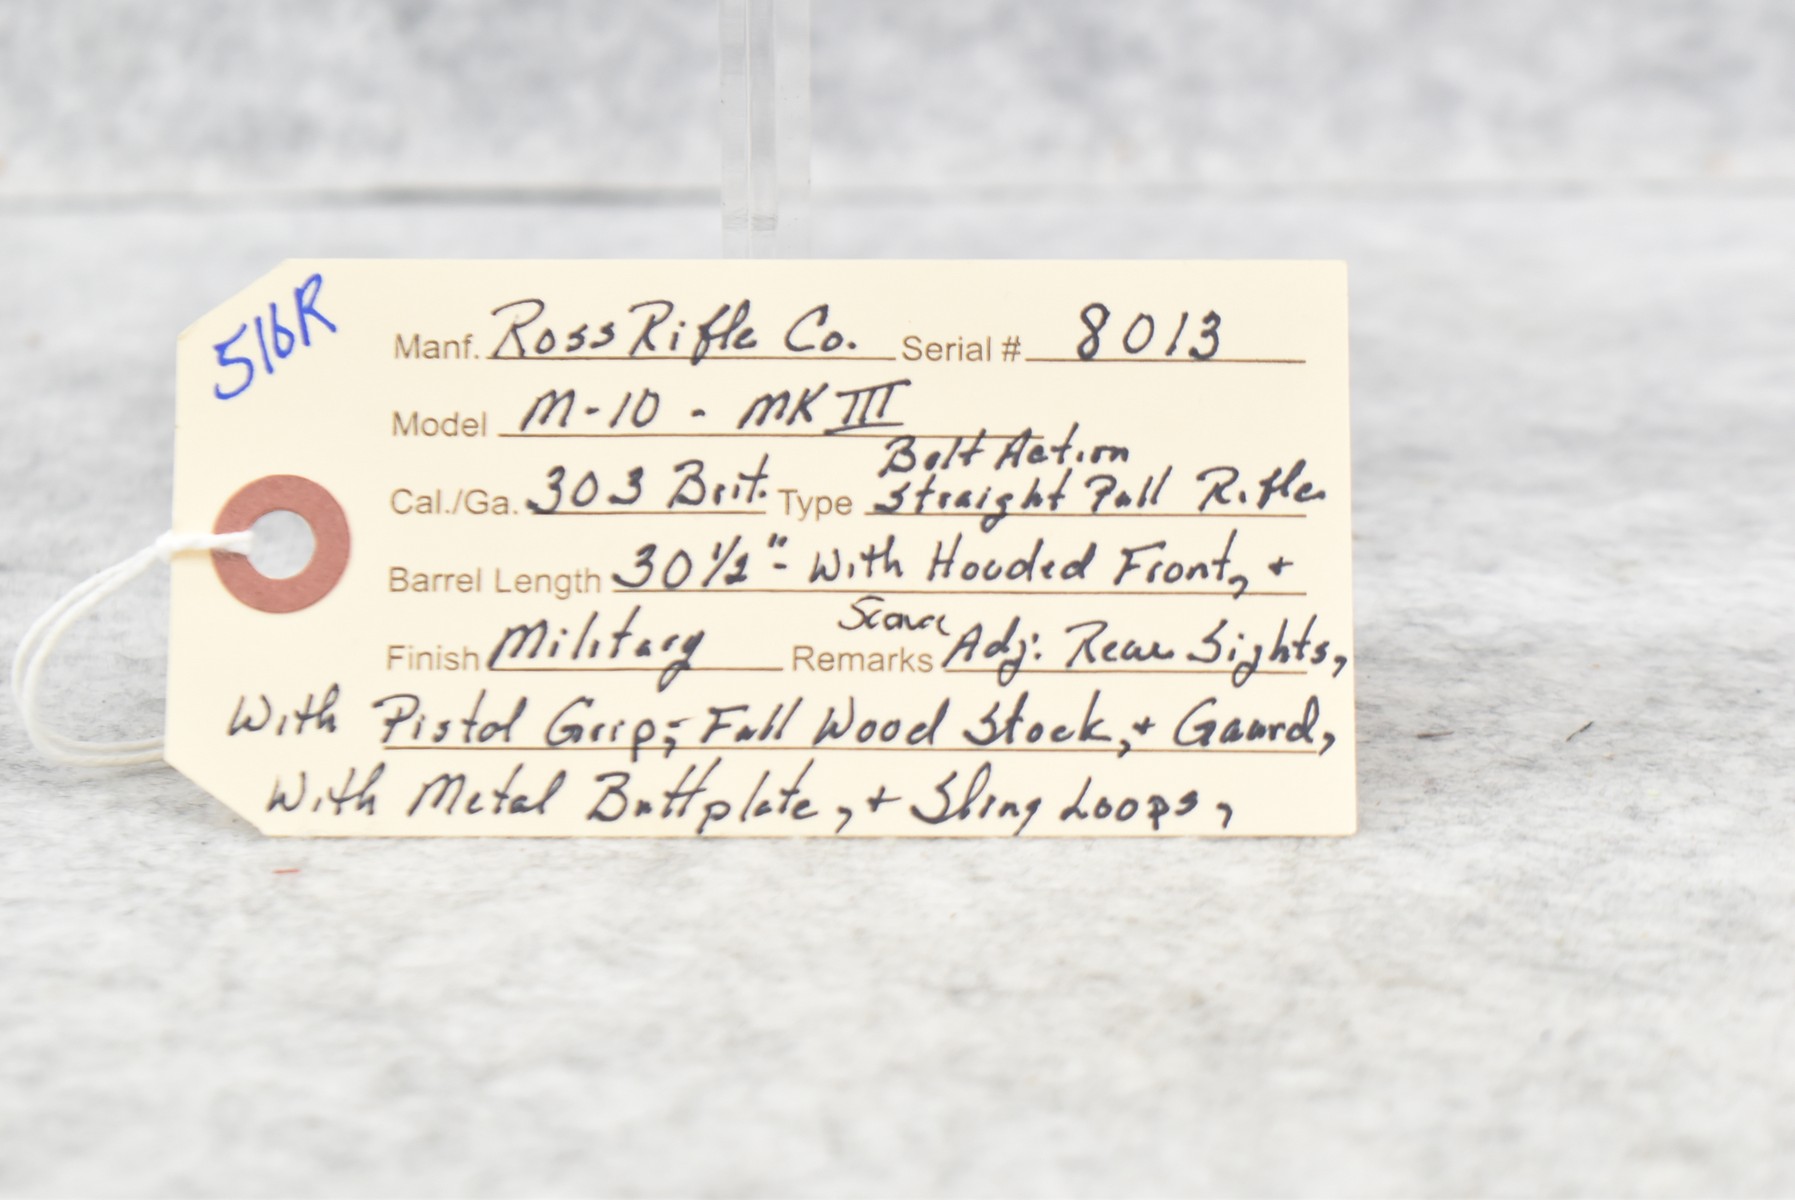 516R
Manf. Ross Rifle Co. Serial # 8013
Model M-10 - MK III
Bolt Action
Cal./Ga. 303 Brit. Type Straight Pull Rifle
Barrel Length 30 1/2"- With Hooded Front, +
Finish Military Remarks Adj: Rear Sights,
With Pistol Grip, - Full Wood Stock, + Gaurd,
With Metal Buttplate, + Sling Loops,